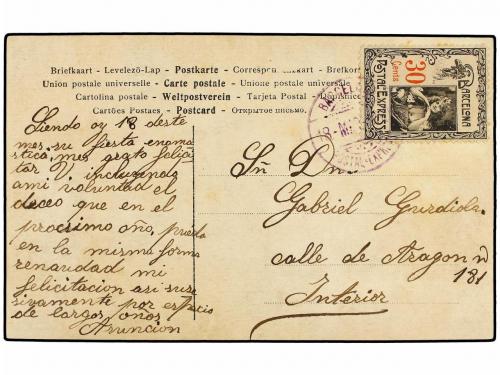 Briefkaart - Levelező-Lap - Postkarte - Correspon skaart - Brefkor
Union postale universelle - Carte postale - Unione postale univer
Cartolina postale - Weltpostverein - Tarjeta Postal -
Cartões Postaes - Postcard - Открытое письмо.
30
Cents
BARCELONA
POSTAL-EXPRESS
BARCEL
POSTAL-EXPR
Siendo oy 18 deste
mes su fiesta enomas
tica, mes grato felici
tar V. incluyendo
ami voluntad el
deceo que en el
procsimo año, pueda
en la misma forma
renaudad mi
felicitacion asi suce
sivamente por espacio
de largos años
Asuncion
Sñ Dn
Gabriel Gurdiola
calle de Aragon n
181
Interior